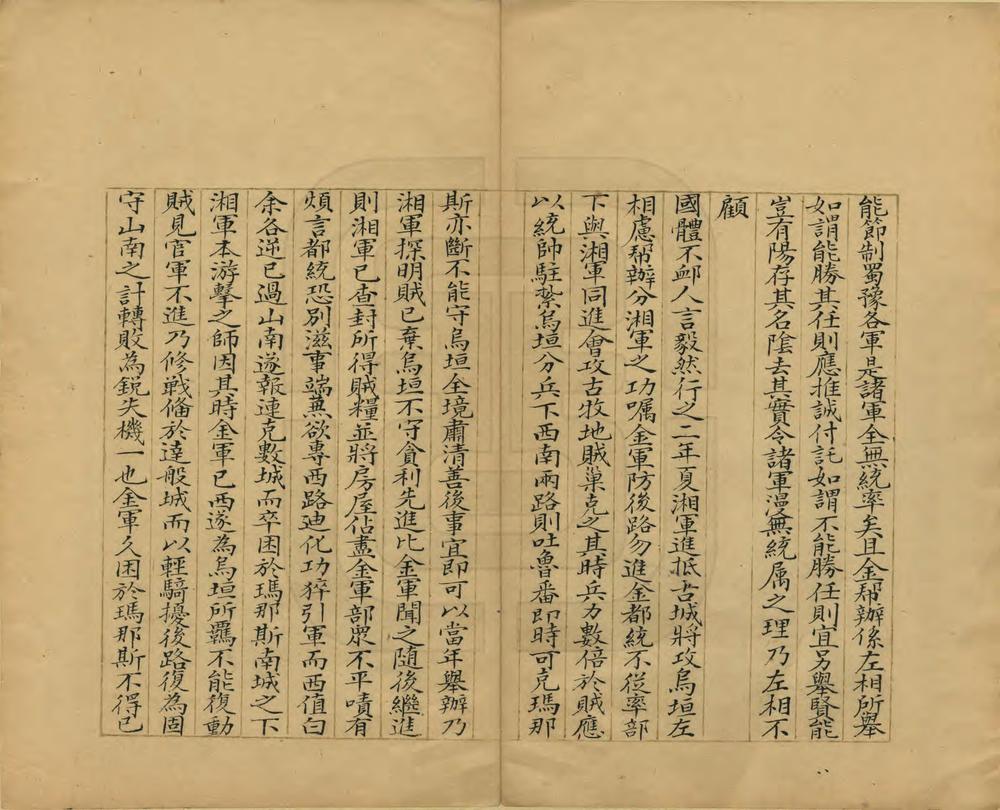 能節制蜀豫各軍是諸軍全無統率矣且金帮辦係左相所舉
如謂能勝其任則應推誠付託如謂不能勝任則宜另舉賢能
豈有陽存其名陰去其實令諸軍漫無統属之理乃左相不
顧
國體不卹人言毅然行之二年夏湘軍進抵古城將攻烏垣左
相慮帮辦分湘軍之功嘱金軍防後路勿進金都統不從率部
下與湘軍同進會攻古牧地賊巢克之其時兵力數倍於賊應
以統帥駐紮烏垣分兵下西南兩路則吐魯番即時可克瑪那
斯亦斷不能守烏垣全境肅清善後事宜即可以當年舉辦乃
湘軍探明賊已棄烏垣不守貪利先進比金軍聞之隨後繼進
則湘軍已查封所得賊糧並將房屋佔盡金軍部眾不平嘖有
煩言都統恐別滋事端兼欲專西路廸化功猝引軍而西值白
余各逆已過山南遂報連克數城而卒困於瑪那斯南城之下
湘軍本游擊之師因其時金軍已西遂為烏垣所羈不能復動
賊見官軍不進乃修戰偹於達般城而以輕騎擾後路復為固
守山南之計轉敗為銳失機一也金軍久困於瑪那斯不得已